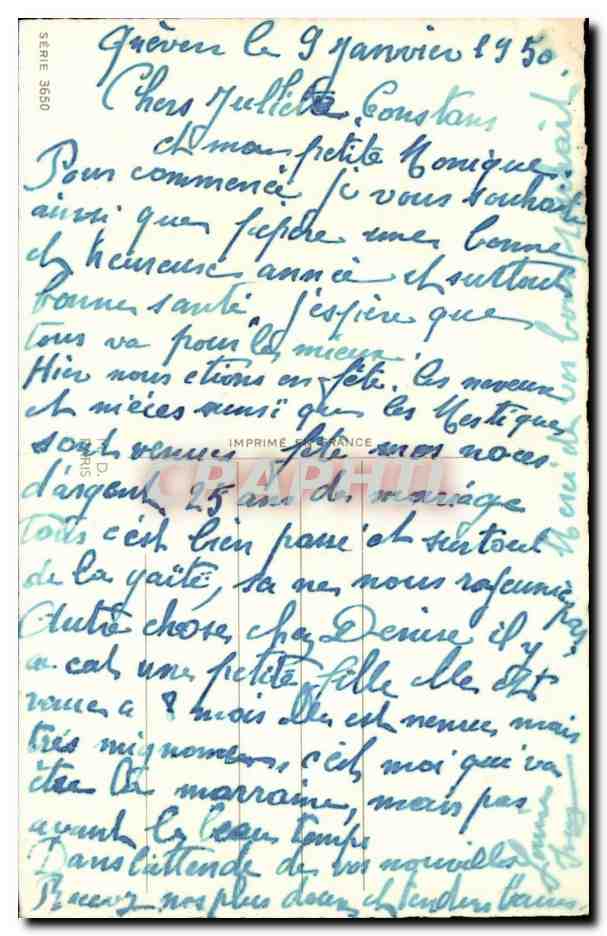 SÉRIE 3650
Quéven le 9 Janvier 1950.
Chers Juliette, Constans
et mon petite Monique.
Pour commencé je vous souhait
ainsi que pépère une bonne
et heureuse année et surtout
bonne santé j'espère que
tous va pour les mieux
Hier nous étions en fête. les neveux
et nièces aussi que les
sont venus fêté mes noces
d'argent 25 ans de mariage
Tous c'est bien passé et surtout
de la gaité, sa nes nous rajeunie pas
Autre choses chez Denise il y
a eat une petite fille elle est
venue a 8 mois elle est menue mais
très mignonne, c'est moi qui va
être la marraine, mais pas
avant le beau temps
Dans l'attende de vos nouvelles
Recevez nos plus doux et tendres baisers
Merci de vos bons souhaits
IMPRIMÉ EN FRANCE
D.
PARIS
CPAPHIL